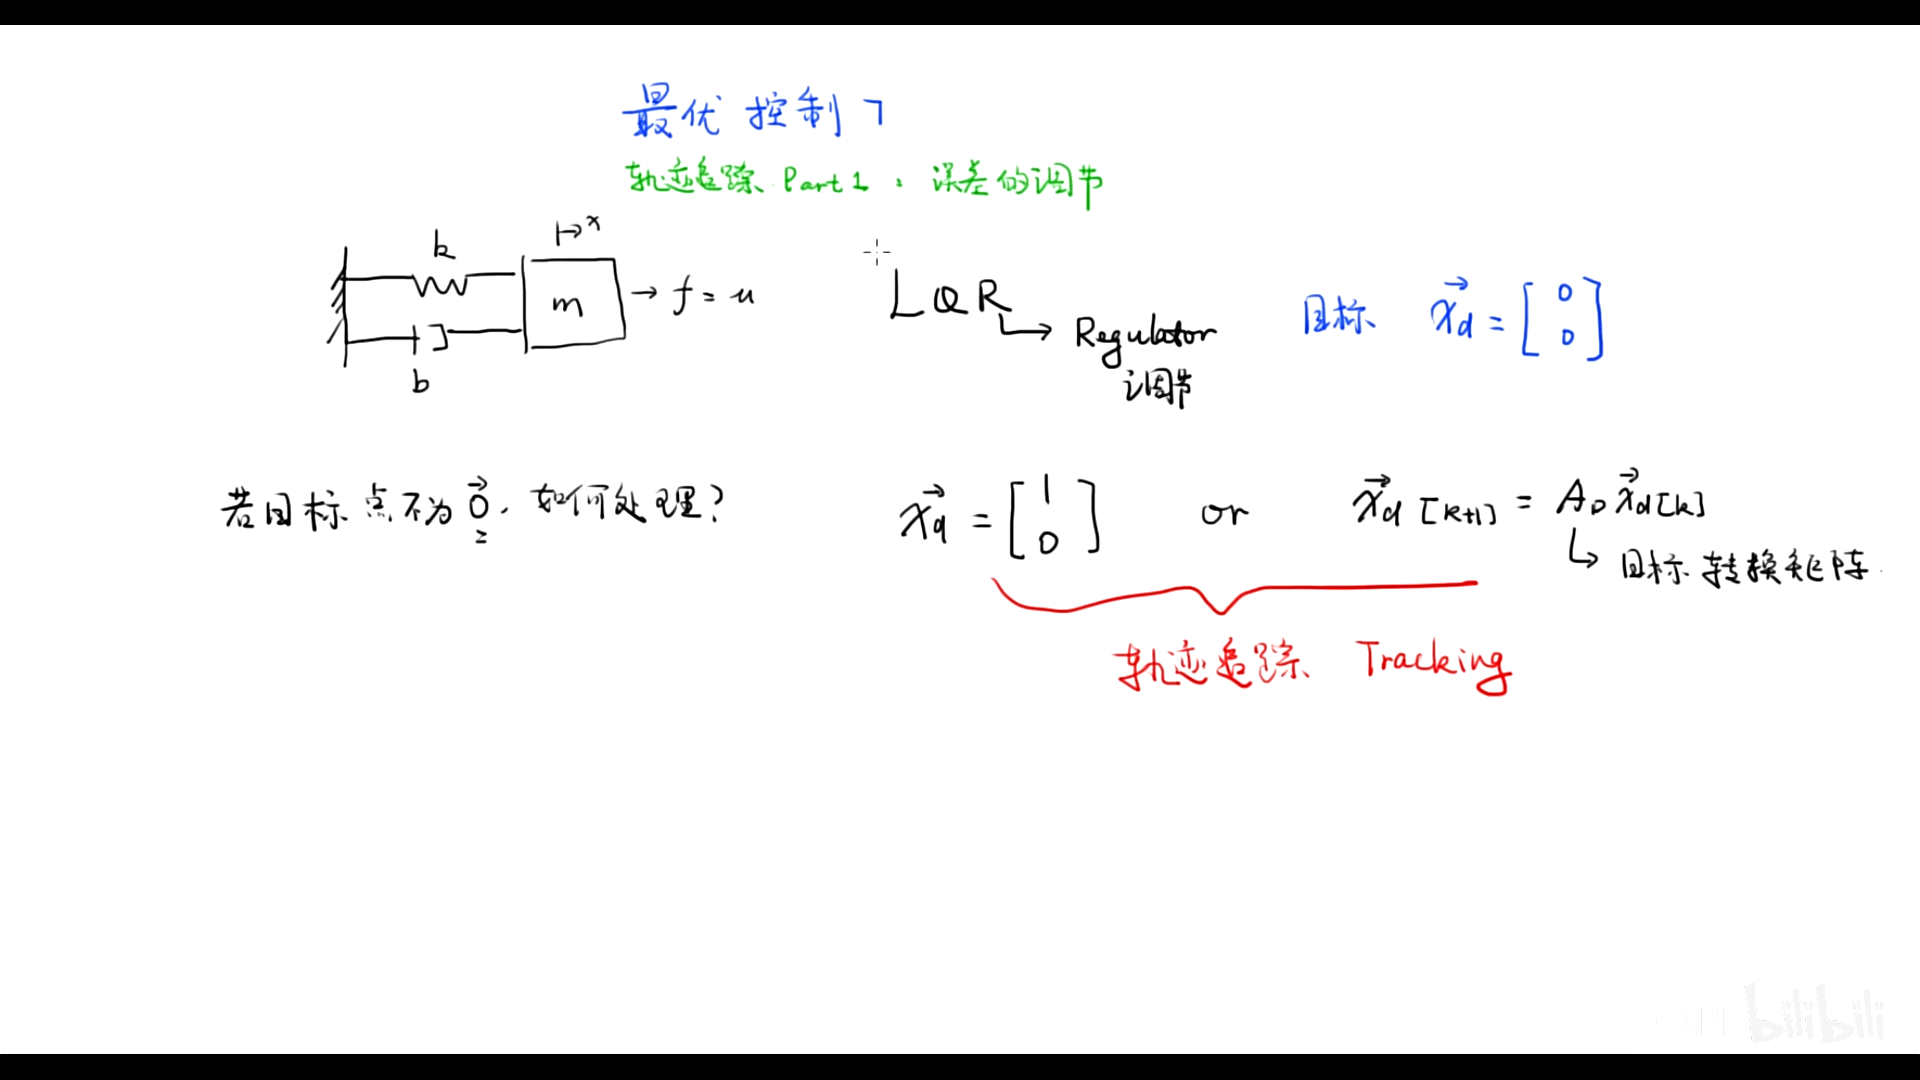 最优控制7
轨迹追踪 Part 1: 误差的调节
k
↦x
m
→ f = u
b
LQR
↳ Regulator
调节
目标 x⃗d = [0 0]
若目标点不为 0⃗, 如何处理?
x⃗d = [1 0] or x⃗d[k+1] = A_D x⃗d[k]
↳ 目标转换矩阵
轨迹追踪 Tracking
bilibili